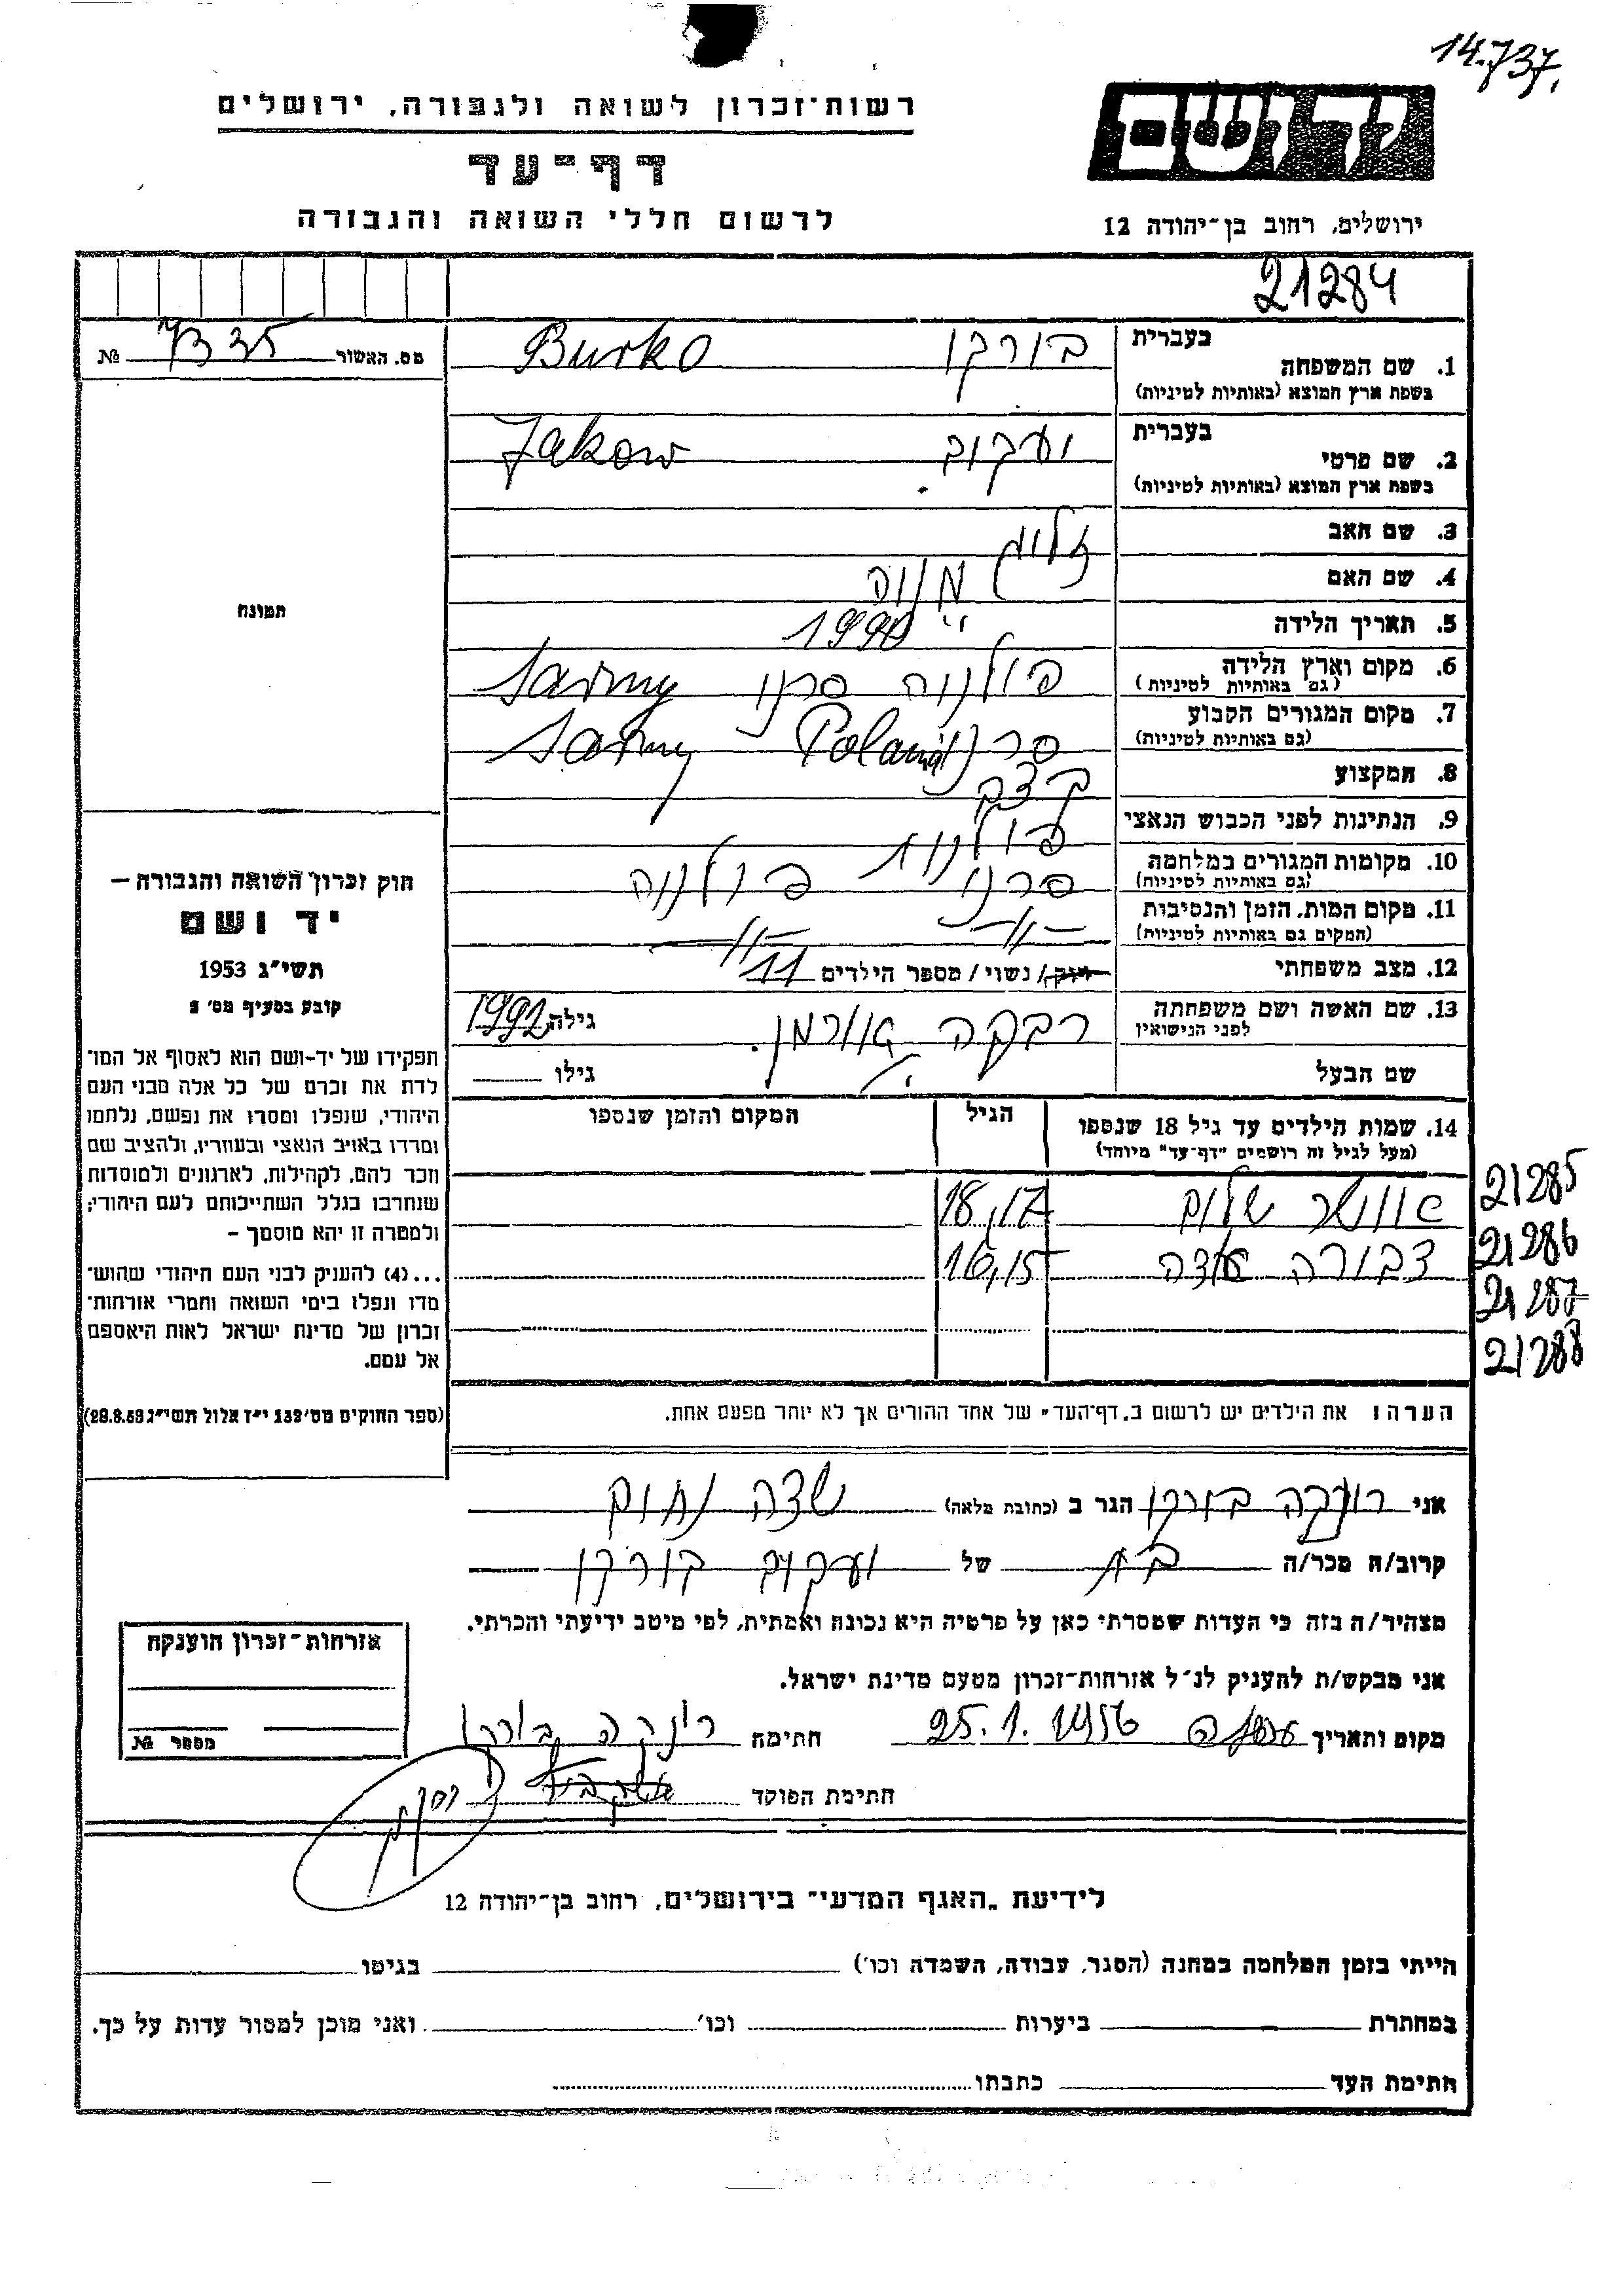 14.737.
רשות-זכרון לשואה ולגבורה, ירושלים
דף-עד
לרשום חללי השואה והגבורה
ירושלים, רחוב בן-יהודה 12
21284
מס. האשור 7335 №
1. שם המשפחה בעברית בורקו Burko
בשפת ארץ המוצא (באותיות לטיניות)
2. שם פרטי בעברית יעקוב Jakow
בשפת ארץ המוצא (באותיות לטיניות)
3. שם האב
4. שם האם
5. תאריך הלידה
6. מקום וארץ הלידה פולניה סרני Sarny
(גם באותיות לטיניות)
7. מקום המגורים הקבוע סרני Poland Sarny
(גם באותיות לטיניות)
8. המקצוע קצב
9. הנתינות לפני הכבוש הנאצי פולנית
10. מקומות המגורים במלחמה סרני פולניה
(גם באותיות לטיניות)
11. מקום המות, הזמן והנסיבות -"- -"-
(המקום גם באותיות לטיניות)
12. מצב משפחתי רוק/ נשוי / מספר הילדים 11
13. שם האשה ושם משפחתה רבקה גילה
לפני הנישואין
שם הבעל גילו
תמונה
חוק זכרון השואה והגבורה –
יד ושם
תשי"ג 1953
קובע בסעיף מס' 2
תפקידו של יד-ושם הוא לאסוף אל המו־
לדת את זכרם של כל אלה מבני העם
היהודי, שנפלו ומסרו את נפשם, נלחמו
ומרדו באויב הנאצי ובעוזריו, ולהציב שם
וזכר להם, לקהילות, לארגונים ולמוסדות
שנחרבו בגלל השתייכותם לעם היהודי;
ולמטרה זו יהא מוסמך –
...(4) להעניק לבני העם היהודי שהוש־
מדו ונפלו בימי השואה והמרי אזרחות־
זכרון של מדינת ישראל לאות היאספם
אל עמם.
(ספר החוקים מס' 132 י"ז אלול תשי"ג 28.8.53)
14. שמות הילדים עד גיל 18 שנספו הגיל המקום והזמן שנספו
(מעל לגיל זה רושמים "דף-עד" מיוחד)
שלום 18,17 21285
דבורה 16,15 21286
21287
21288
הערה: את הילדים יש לרשום ב"דף-העד" של אחד ההורים אך לא יותר מפעם אחת.
אני בורקו הגר ב (כתובת מלאה) שדה נחום
קרוב/ה מכר/ה בת של יעקוב בורקו
מצהיר/ה בזה כי העדות שמסרתי כאן על פרטיה היא נכונה ואמתית, לפי מיטב ידיעתי והכרתי.
אני מבקש/ת להעניק לנ"ל אזרחות-זכרון מטעם מדינת ישראל.
מקום ותאריך 25.1.1956 חתימה
חתימת הפוקד
אזרחות-זכרון הוענקה
מספר №
לידיעת "האגף המדעי" בירושלים, רחוב בן-יהודה 12
הייתי בזמן המלחמה במחנה (הסגר, עבודה, השמדה וכו') בגיטו
במחתרת ביערות וכו' ואני מוכן למסור עדות על כך.
חתימת העד כתבתו